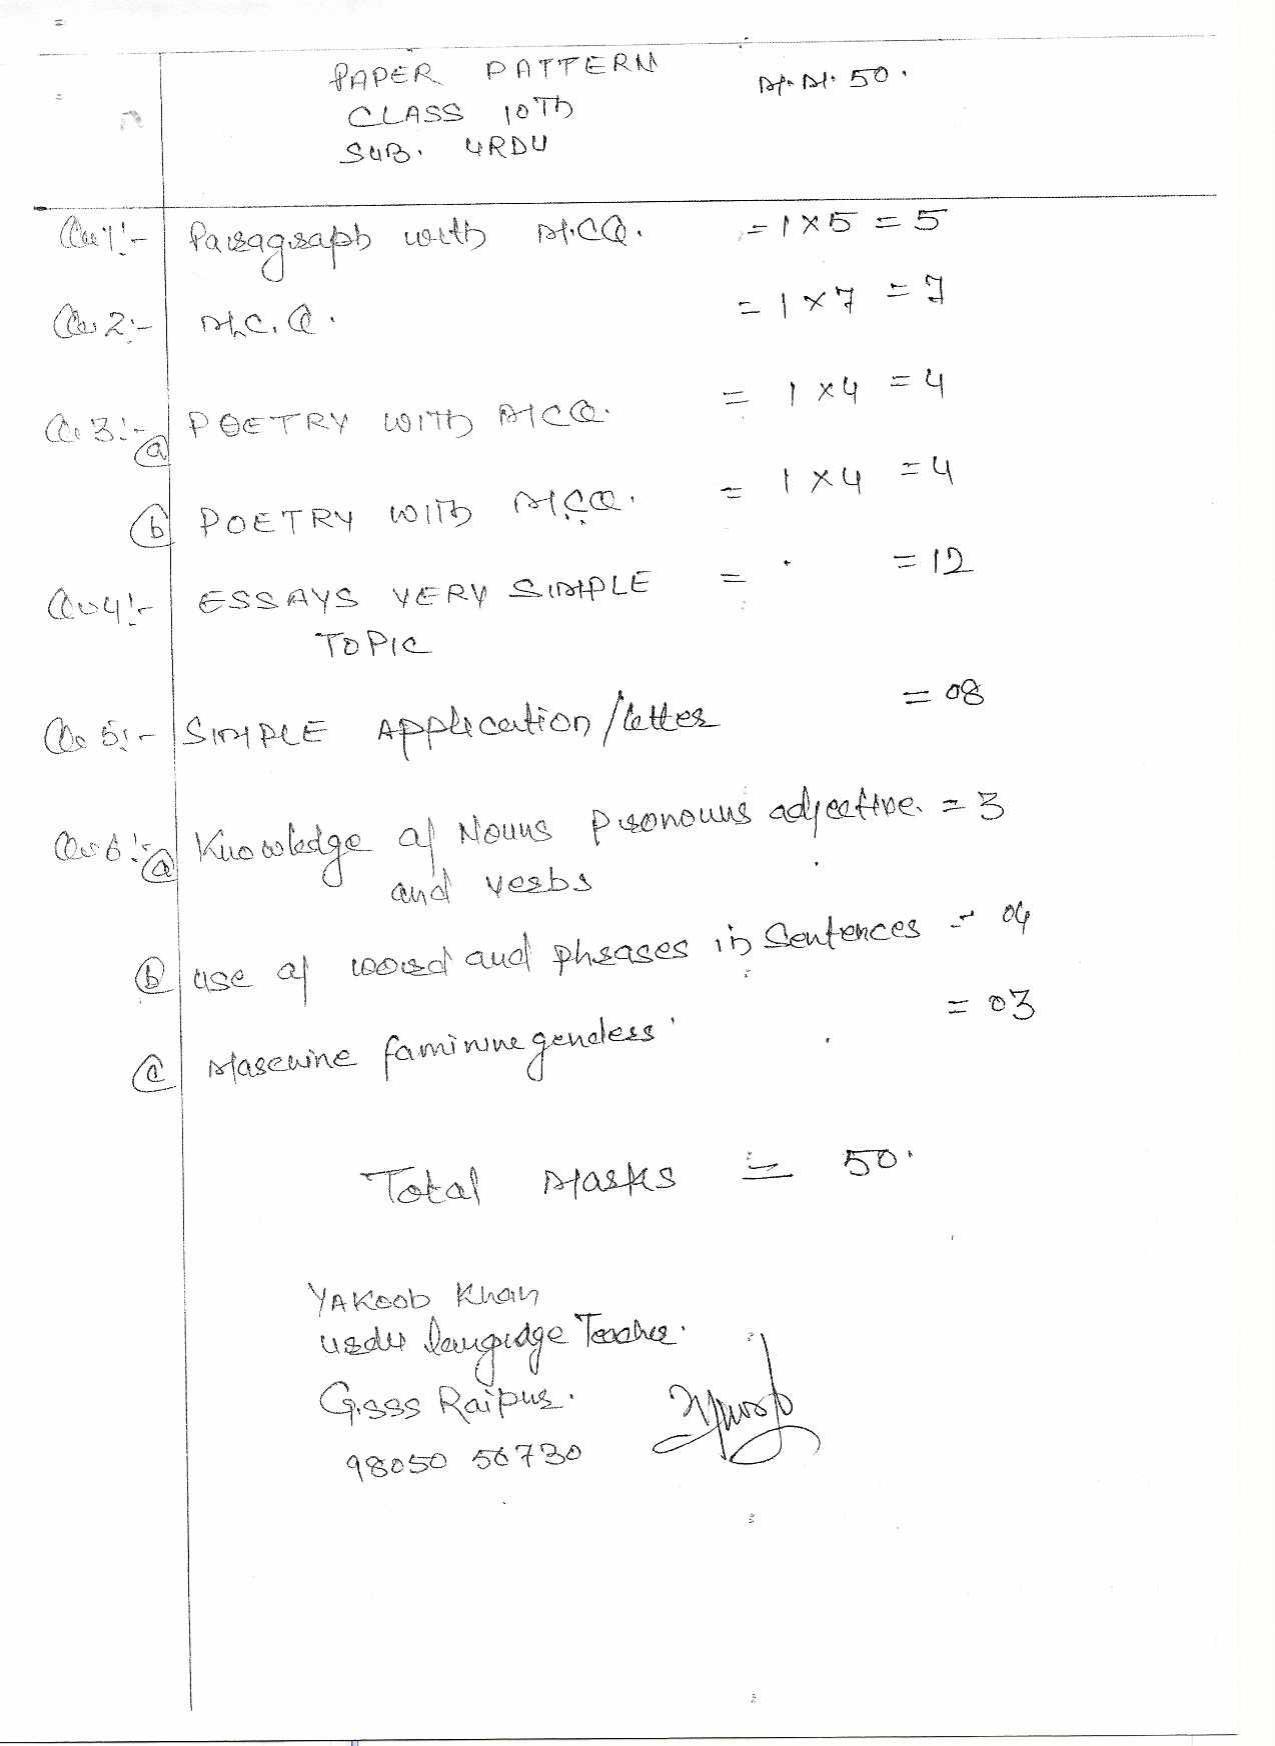 PAPER PATTERN M.M. 50.
CLASS 10Th
SUB. URDU
Qu 1:- Paragraph with M.CQ. = 1 X 5 = 5
Qu 2:- M.C.Q. = 1 X 7 = 7
Qu 3:- (a) POETRY WITh MCQ. = 1 X 4 = 4
(b) POETRY WITh MCQ. = 1 X 4 = 4
Qu 4:- ESSAYS VERY SIMPLE = = 12
TOPIC
Qu 5:- SIMPLE Application/letter = 08
Qu 6:- (a) Knowledge of Nouns Pronouns adjective. = 3
and verbs
(b) use of word and phrases in Sentences = 04
(c) Mascuine faminine genders = 03
Total Marks = 50.
YAKoob Khan
urdu language Teacher.
G.sss Raipur.
98050 56730